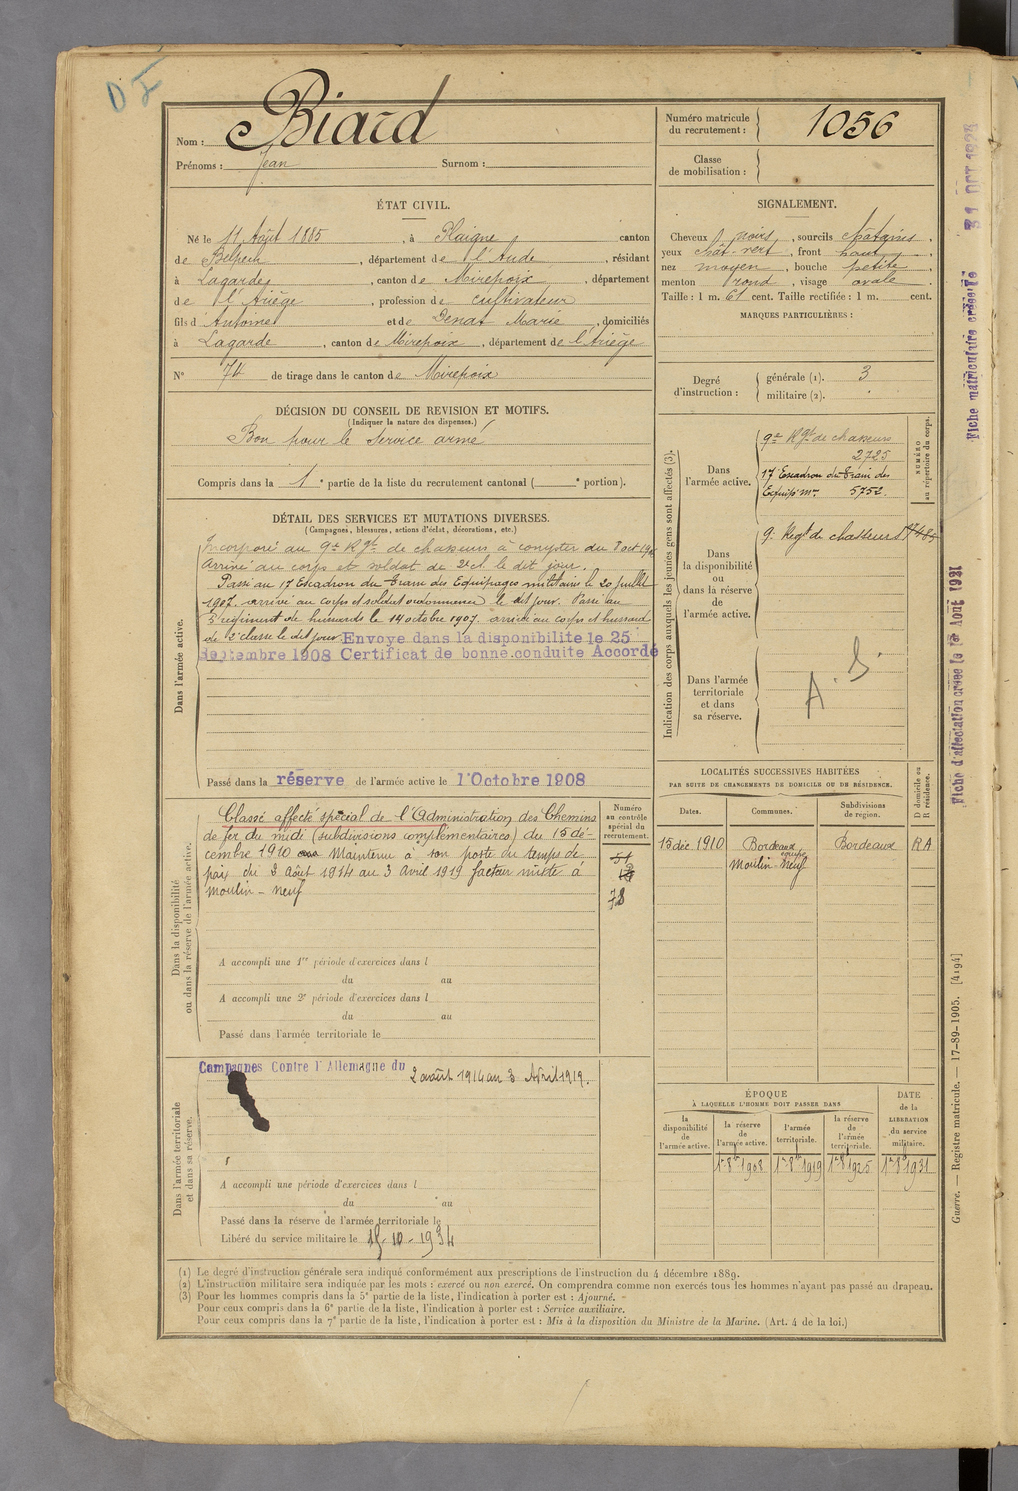 D I
Nom : Biard
Prénoms : Jean Surnom :
Numéro matricule du recrutement : 1056
Classe de mobilisation :
ÉTAT CIVIL.
Né le 11 Août 1885, à Plaigne canton
de Belpech, département de l'Aude, résidant
à Lagarde, canton de Mirepoix, département
de l'Ariège, profession de cultivateur
fils d'Antoine et de Denat Marie, domiciliés
à Lagarde, canton de Mirepoix, département de l'Ariège
N° 74 de tirage dans le canton de Mirepoix
SIGNALEMENT.
Cheveux noirs, sourcils chatains,
yeux chât-vert, front haut,
nez moyen, bouche petite,
menton rond, visage ovale.
Taille : 1 m. 61 cent. Taille rectifiée : 1 m. cent.
MARQUES PARTICULIÈRES :
Degré d'instruction : générale (1). 3
militaire (2).
DÉCISION DU CONSEIL DE REVISION ET MOTIFS.
(Indiquer la nature des dispenses.)
Bon pour le service armé
Compris dans la 1e partie de la liste du recrutement cantonal ( e portion).
DÉTAIL DES SERVICES ET MUTATIONS DIVERSES.
(Campagnes, blessures, actions d'éclat, décorations, etc.)
Dans l'armée active.
Incorporé au 9e Rgt de chasseurs à compter du 8 oct 1906
Arrivé au corps et soldat de 2e cl. le dit jour.
Passé au 17 Escadron du Train des Equipages militaires le 20 Juillet
1907. arrivé au corps et soldat ordonnance le dit jour. Passé au
régiment de hussards le 14 octobre 1907, arrivé au corps et hussard
de 2e classe le dit jour Envoye dans la disponibilite le 25
Septembre 1908 Certificat de bonne conduite Accordé
Passé dans la réserve de l'armée active le 1 Octobre 1908
Indication des corps auxquels les jeunes gens sont affectés (3).
NUMÉRO au répertoire du corps.
Dans l'armée active.
9e Rgt de chasseurs
2725
17 Escadron du Train des
Equip. mres 5752.
Dans la disponibilité ou dans la réserve de l'armée active.
9e Regt de chasseurs
Dans l'armée territoriale et dans sa réserve.
A. S.
Dans la disponibilité ou dans la réserve de l'armée active.
Classé affecté spécial de l'Administration des Chemins
de fer du midi (subdivisions complémentaires) du 15 dé-
cembre 1910 Maintenu à son poste du temps de
paix du 2 Août 1914 au 3 Avril 1919 facteur mixte à
Moulin-neuf
Numéro au contrôle spécial du recrutement.
51
78
A accompli une 1re période d'exercices dans l
du au
A accompli une 2e période d'exercices dans l
du au
Passé dans l'armée territoriale le
LOCALITÉS SUCCESSIVES HABITÉES
PAR SUITE DE CHANGEMENTS DE DOMICILE OU DE RÉSIDENCE.
Dates. Communes. Subdivisions de région. D domicile ou R résidence.
15 déc. 1910 Bordeaux Bordeaux RA
Moulin-Neuf
Dans l'armée territoriale et dans sa réserve.
Campagnes Contre l'Allemagne du 2 août 1914 au 3 Avril 1919.
A accompli une période d'exercices dans l
du au
Passé dans la réserve de l'armée territoriale le
Libéré du service militaire le 15-10-1934
ÉPOQUE
À LAQUELLE L'HOMME DOIT PASSER DANS
la disponibilité de l'armée active.
la réserve de l'armée active.
l'armée territoriale.
la réserve de l'armée territoriale.
DATE de la LIBÉRATION du service militaire.
1er 8bre 1908 1er 8bre 1919 1er 8bre 1925 1er 8bre 1931
(1) Le degré d'instruction générale sera indiqué conformément aux prescriptions de l'instruction du 4 décembre 1889.
(2) L'instruction militaire sera indiquée par les mots : exercé ou non exercé. On comprendra comme non exercés tous les hommes n'ayant pas passé au drapeau.
(3) Pour les hommes compris dans la 5e partie de la liste, l'indication à porter est : Ajourné.
Pour ceux compris dans la 6e partie de la liste, l'indication à porter est : Service auxiliaire.
Pour ceux compris dans la 7e partie de la liste, l'indication à porter est : Mis à la disposition du Ministre de la Marine. (Art. 4 de la loi.)
Fiche matriculaire créée le 31 OCT 1923
Fiche d'affectation créée le 1er Août 1921
Guerre. — Registre matricule. — 17-89-1905. [4194]